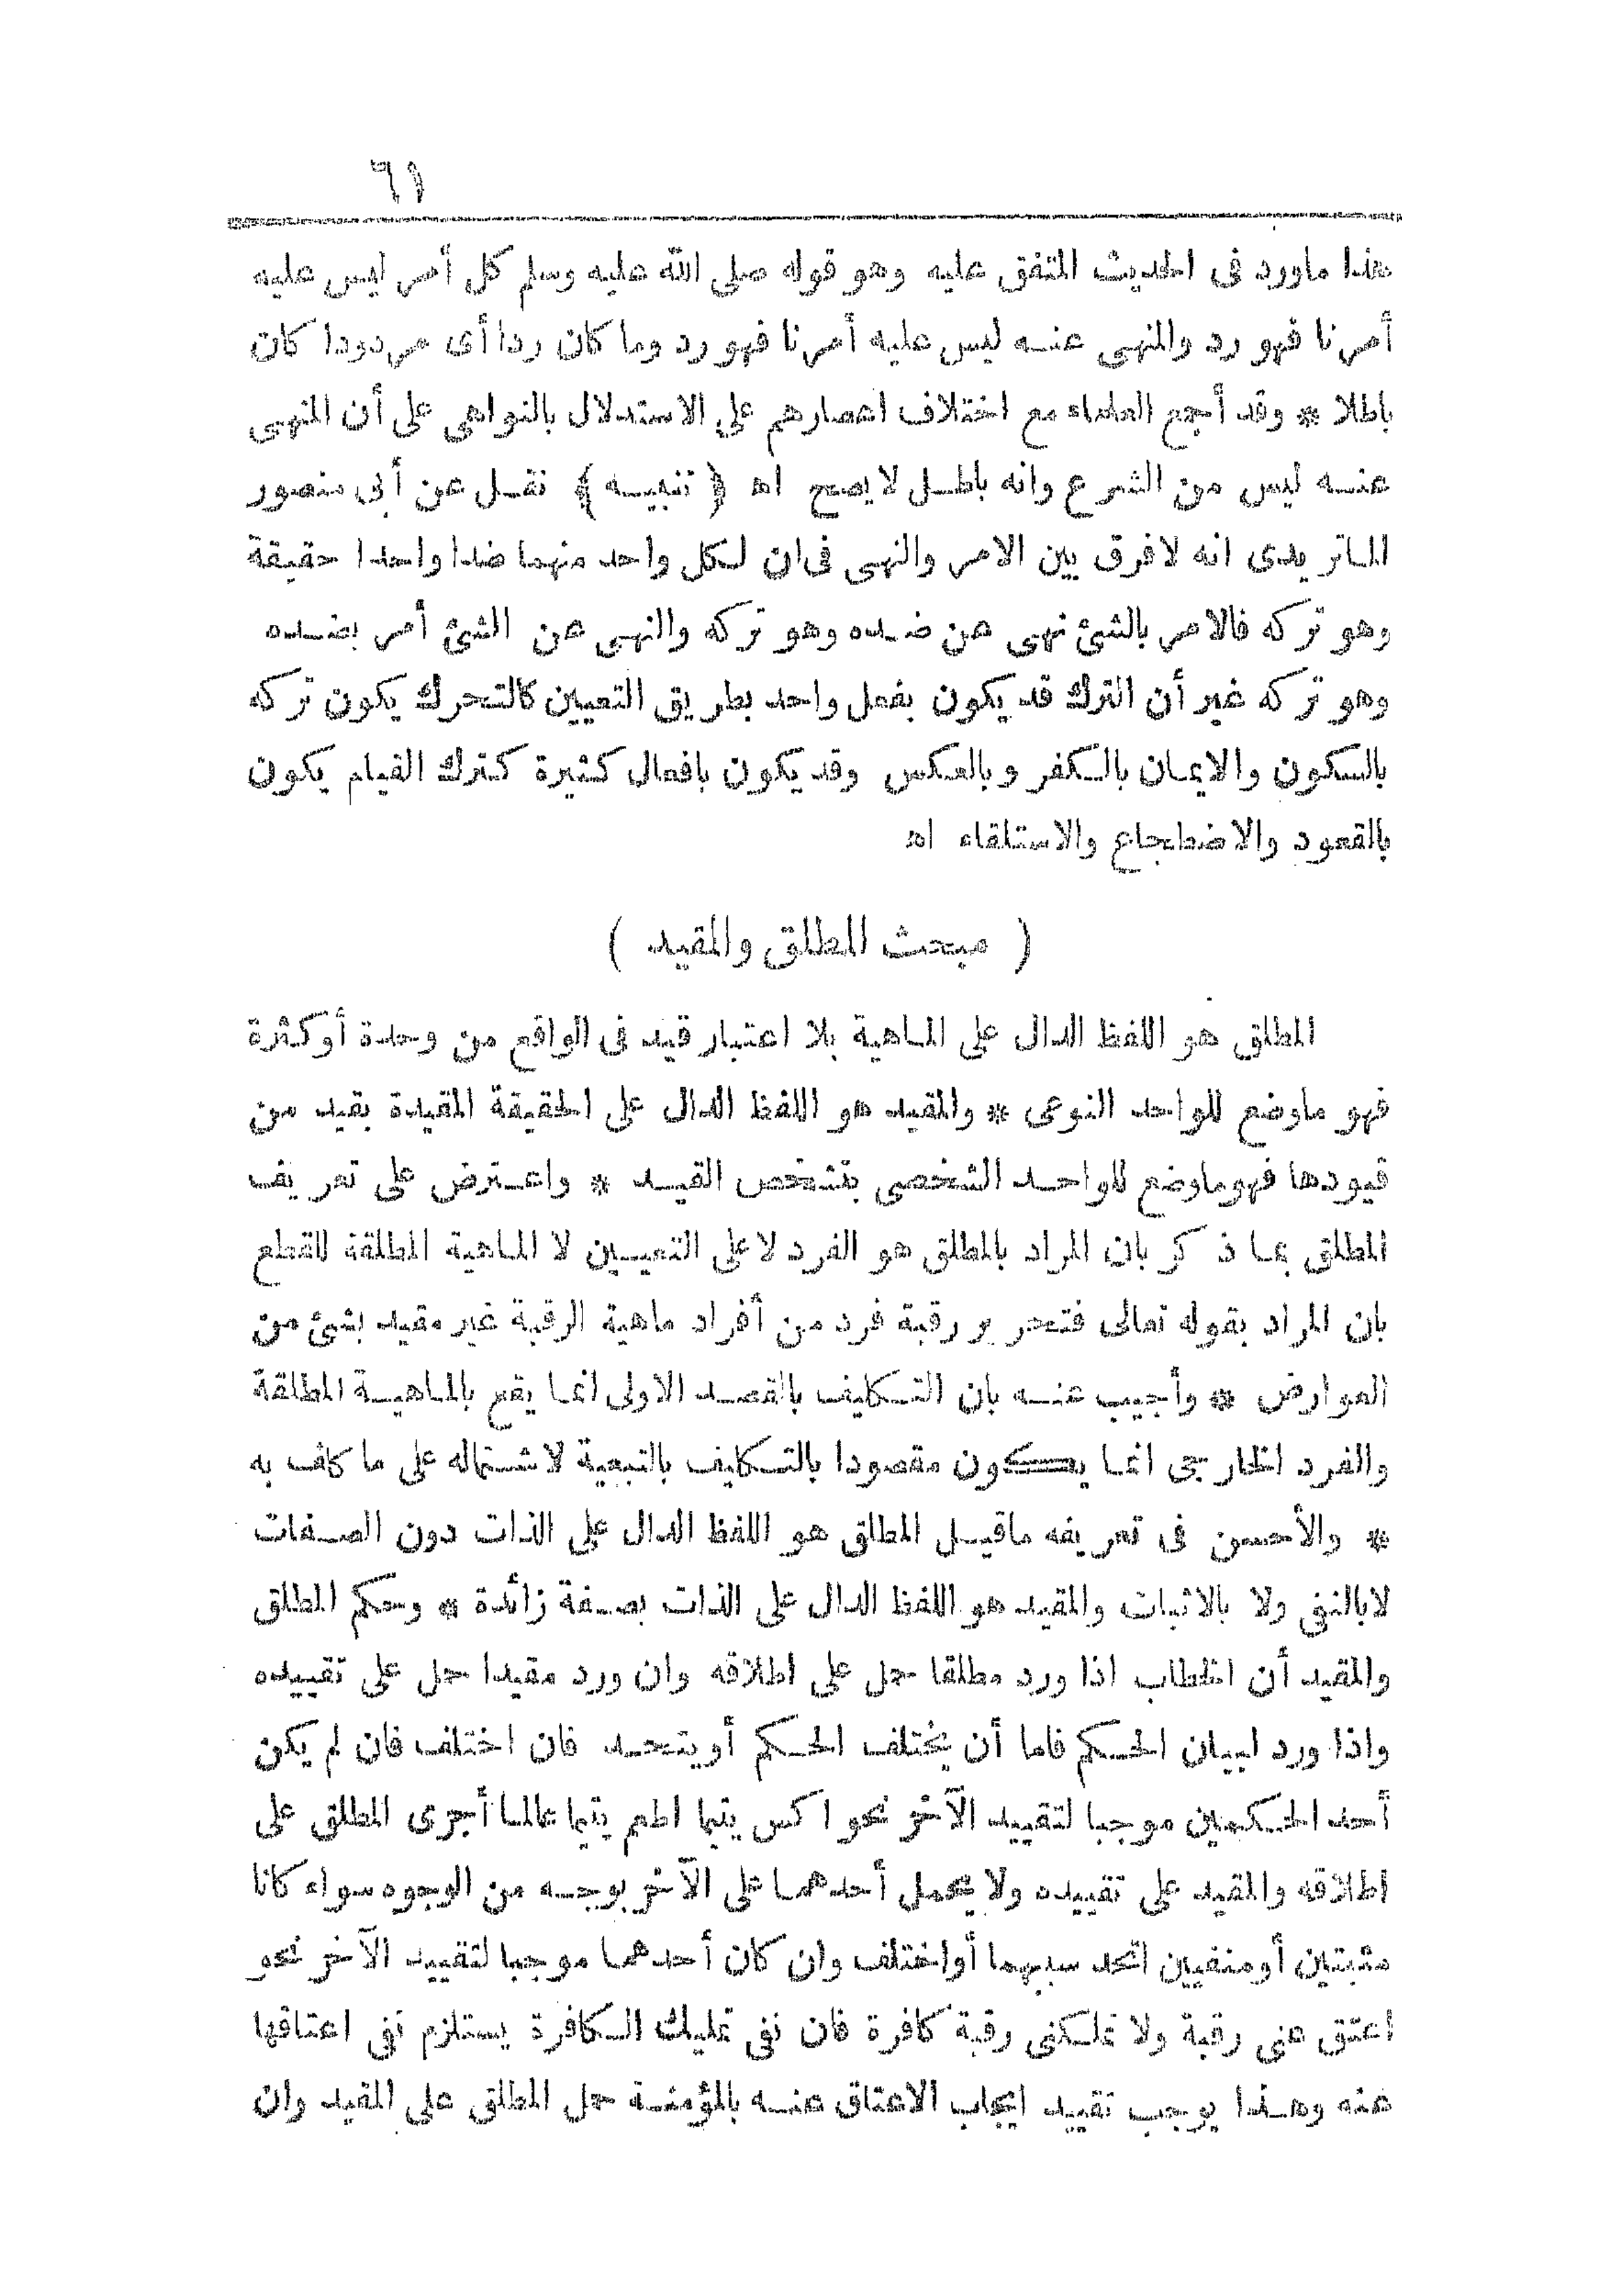 ٦١
هذا ماورد فى الحديث المتفق عليه وهو قوله صلى الله عليه وسلم كل أمر ليس عليه
أمرنا فهو رد والمنهى عنه ليس عليه أمرنا فهو رد وما كان ردا أى مردودا كان
باطلا * وقد أجمع العلماء مع اختلاف اعصارهم على الاستدلال بالنواهى على أن المنهى
عنه ليس من الشرع وانه باطل لايصح اه ﴿ تنبيه ﴾ نقل عن أبى منصور
الماتريدى انه لافرق بين الامر والنهى فى ان لكل واحد منهما ضدا واحدا حقيقة
وهو تركه فالامر بالشئ نهى عن ضده وهو تركه والنهى عن الشئ أمر بضده
وهو تركه غير أن الترك قد يكون بفعل واحد بطريق التعيين كالتحرك يكون تركه
بالسكون والايمان بالكفر وبالعكس وقد يكون بافعال كثيرة كترك القيام يكون
بالقعود والاضطجاع والاستلقاء اه
( مبحث المطلق والمقيد )
المطلق هو اللفظ الدال على الماهية بلا اعتبار قيد فى الواقع من وحدة أوكثرة
فهو ماوضع للواحد النوعى * والمقيد هو اللفظ الدال على الحقيقة المقيدة بقيد من
قيودها فهوماوضع للواحد الشخصى بتشخص القيد * واعترض على تعريف
المطلق بما ذكر بان المراد بالمطلق هو الفرد لاعلى التعيين لا الماهية المطلقة للقطع
بان المراد بقوله تعالى فتحرير رقبة فرد من أفراد ماهية الرقبة غير مقيد بشئ من
العوارض * وأجيب عنه بان التكليف بالقصد الاولى انما يقع بالماهية المطلقة
والفرد الخارجى انما يكون مقصودا بالتكليف بالتبعية لاشتماله على ما كلف به
* والأحسن فى تعريفه ماقيل المطلق هو اللفظ الدال على الذات دون الصفات
لابالنفى ولا بالاثبات والمقيد هو اللفظ الدال على الذات بصفة زائدة * وحكم المطلق
والمقيد أن الخطاب اذا ورد مطلقا حمل على اطلاقه وان ورد مقيدا حمل على تقييده
واذا ورد لبيان الحكم فاما أن يختلف الحكم أو يتحد فان اختلف فان لم يكن
أحد الحكمين موجبا لتقييد الآخر نحو اكس يتيما اطعم يتيما عالما أجرى المطلق على
اطلاقه والمقيد على تقييده ولا يحمل أحدهما على الآخر بوجه من الوجوه سواء كانا
مثبتين أومنفيين اتحد سببهما أواختلف وان كان أحدهما موجبا لتقييد الآخر نحو
اعتق عنى رقبة ولا تملكنى رقبة كافرة فان نفى تمليك الكافرة يستلزم نفى اعتاقها
عنه وهذا يوجب تقييد ايجاب الاعتاق عنه بالمؤمنة حمل المطلق على المقيد وان